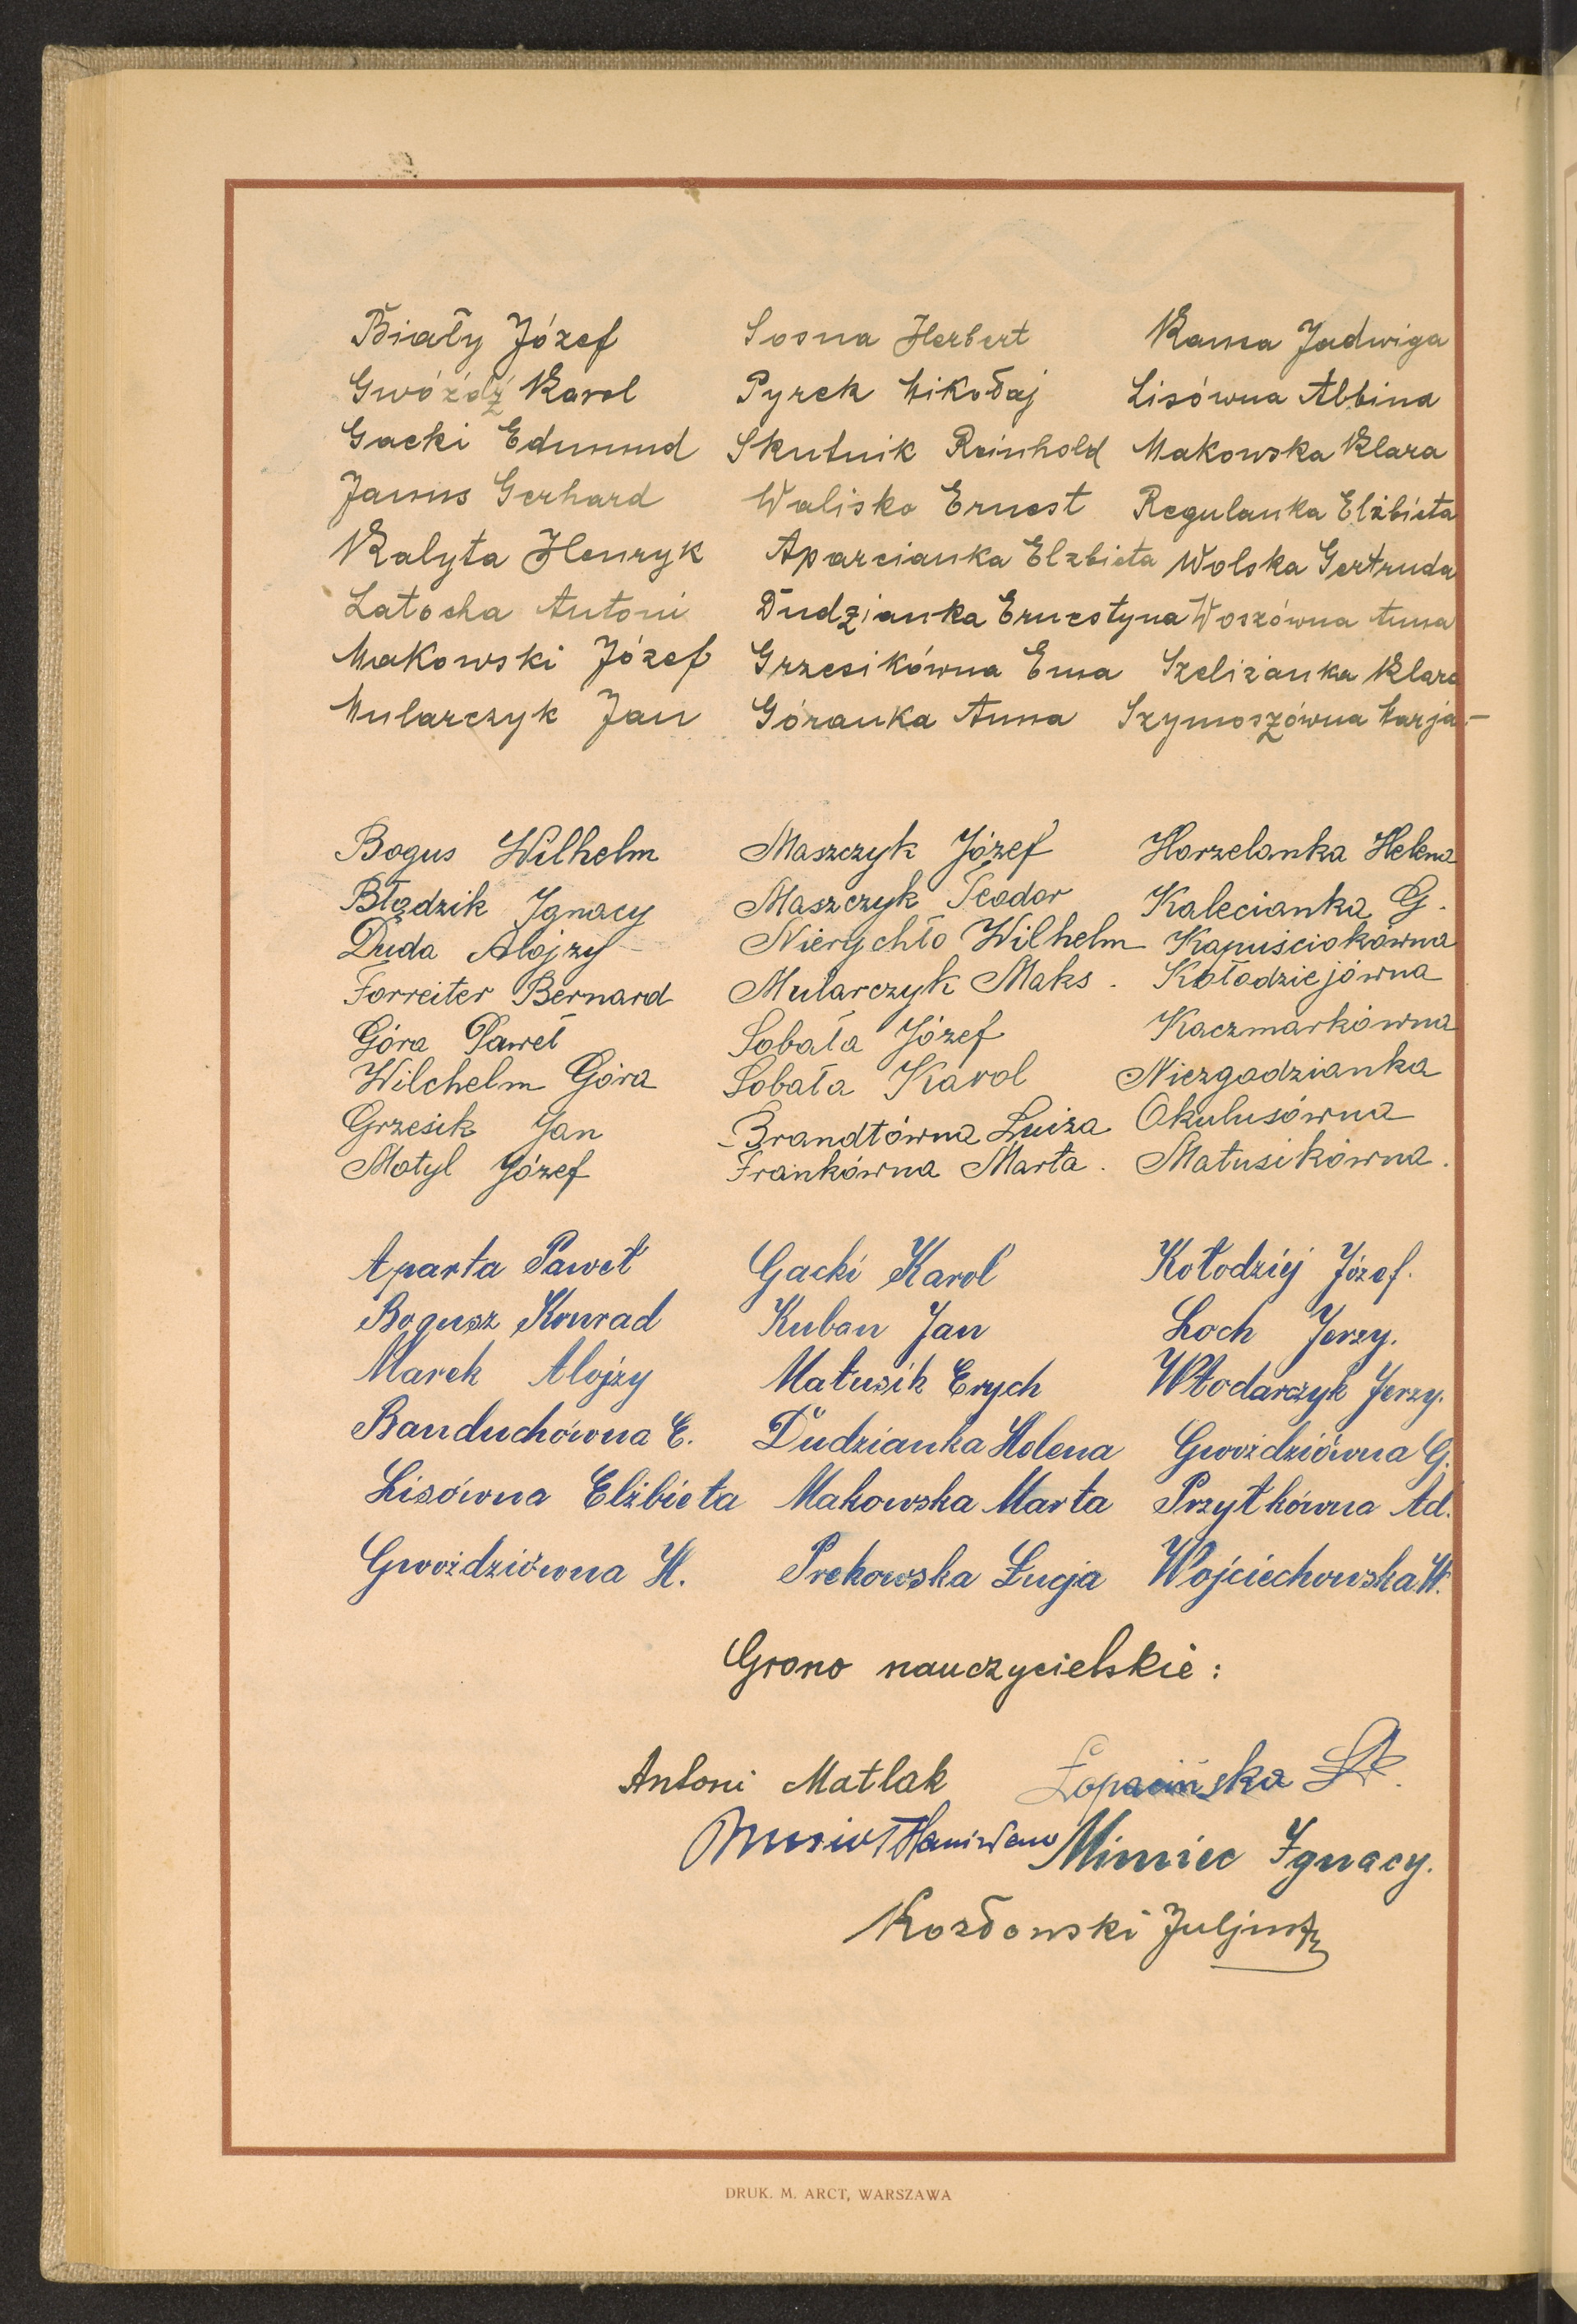 Biały Józef Sosna Herbert Kansa Jadwiga
Gwóźdź Karol Pyrek Mikołaj Lisówna Albina
Gacki Edmund Skutnik Reinhold Makowska Klara
Janus Gerhard Walisko Ernest Regulanka Elżbieta
Kalyta Henryk Aparcianka Elżbieta Wolska Gertruda
Latocha Antoni Dudzianka Ernestyna Woszówna Anna
Makowski Józef Grzesikówna Ema Szeliżanka Klara
Mularczyk Jan Góranka Anna Szymoszówna Marja.-
Bogus Wilhelm Maszczyk Józef Horzelanka Helena
Błądzik Ignacy Maszczyk Teodor Kalecianka G.
Duda Alojzy Nierychło Wilhelm Kapuściokówna
Forreiter Bernard Mularczyk Maks. Kołodziejówna
Góra Paweł Sobała Józef Kaczmarkówna
Wilchelm Góra Sobała Karol Niezgodzianka
Grzesik Jan Brandtówna Luiza Okulusówna
Motyl Józef Frankówna Marta. Matusikówna.
Aparta Paweł Gacki Karol Kołodziej Józef.
Bogusz Konrad Kuban Jan Loch Jerzy.
Marek Alojzy Matusik Erych Włodarczyk Jerzy.
Banduchówna E. Dudzianka Helena Gwoździówna G.
Lisówna Elżbieta Makowska Marta Przytkówna Ad.
Gwoździówna H. Prekowska Łucja Wojciechowska W.
Grono nauczycielskie:
Antoni Matlak Łopacińska
Musioł Mimiec Ignacy.
Kozłowski Juljusz
DRUK. M. ARCT, WARSZAWA